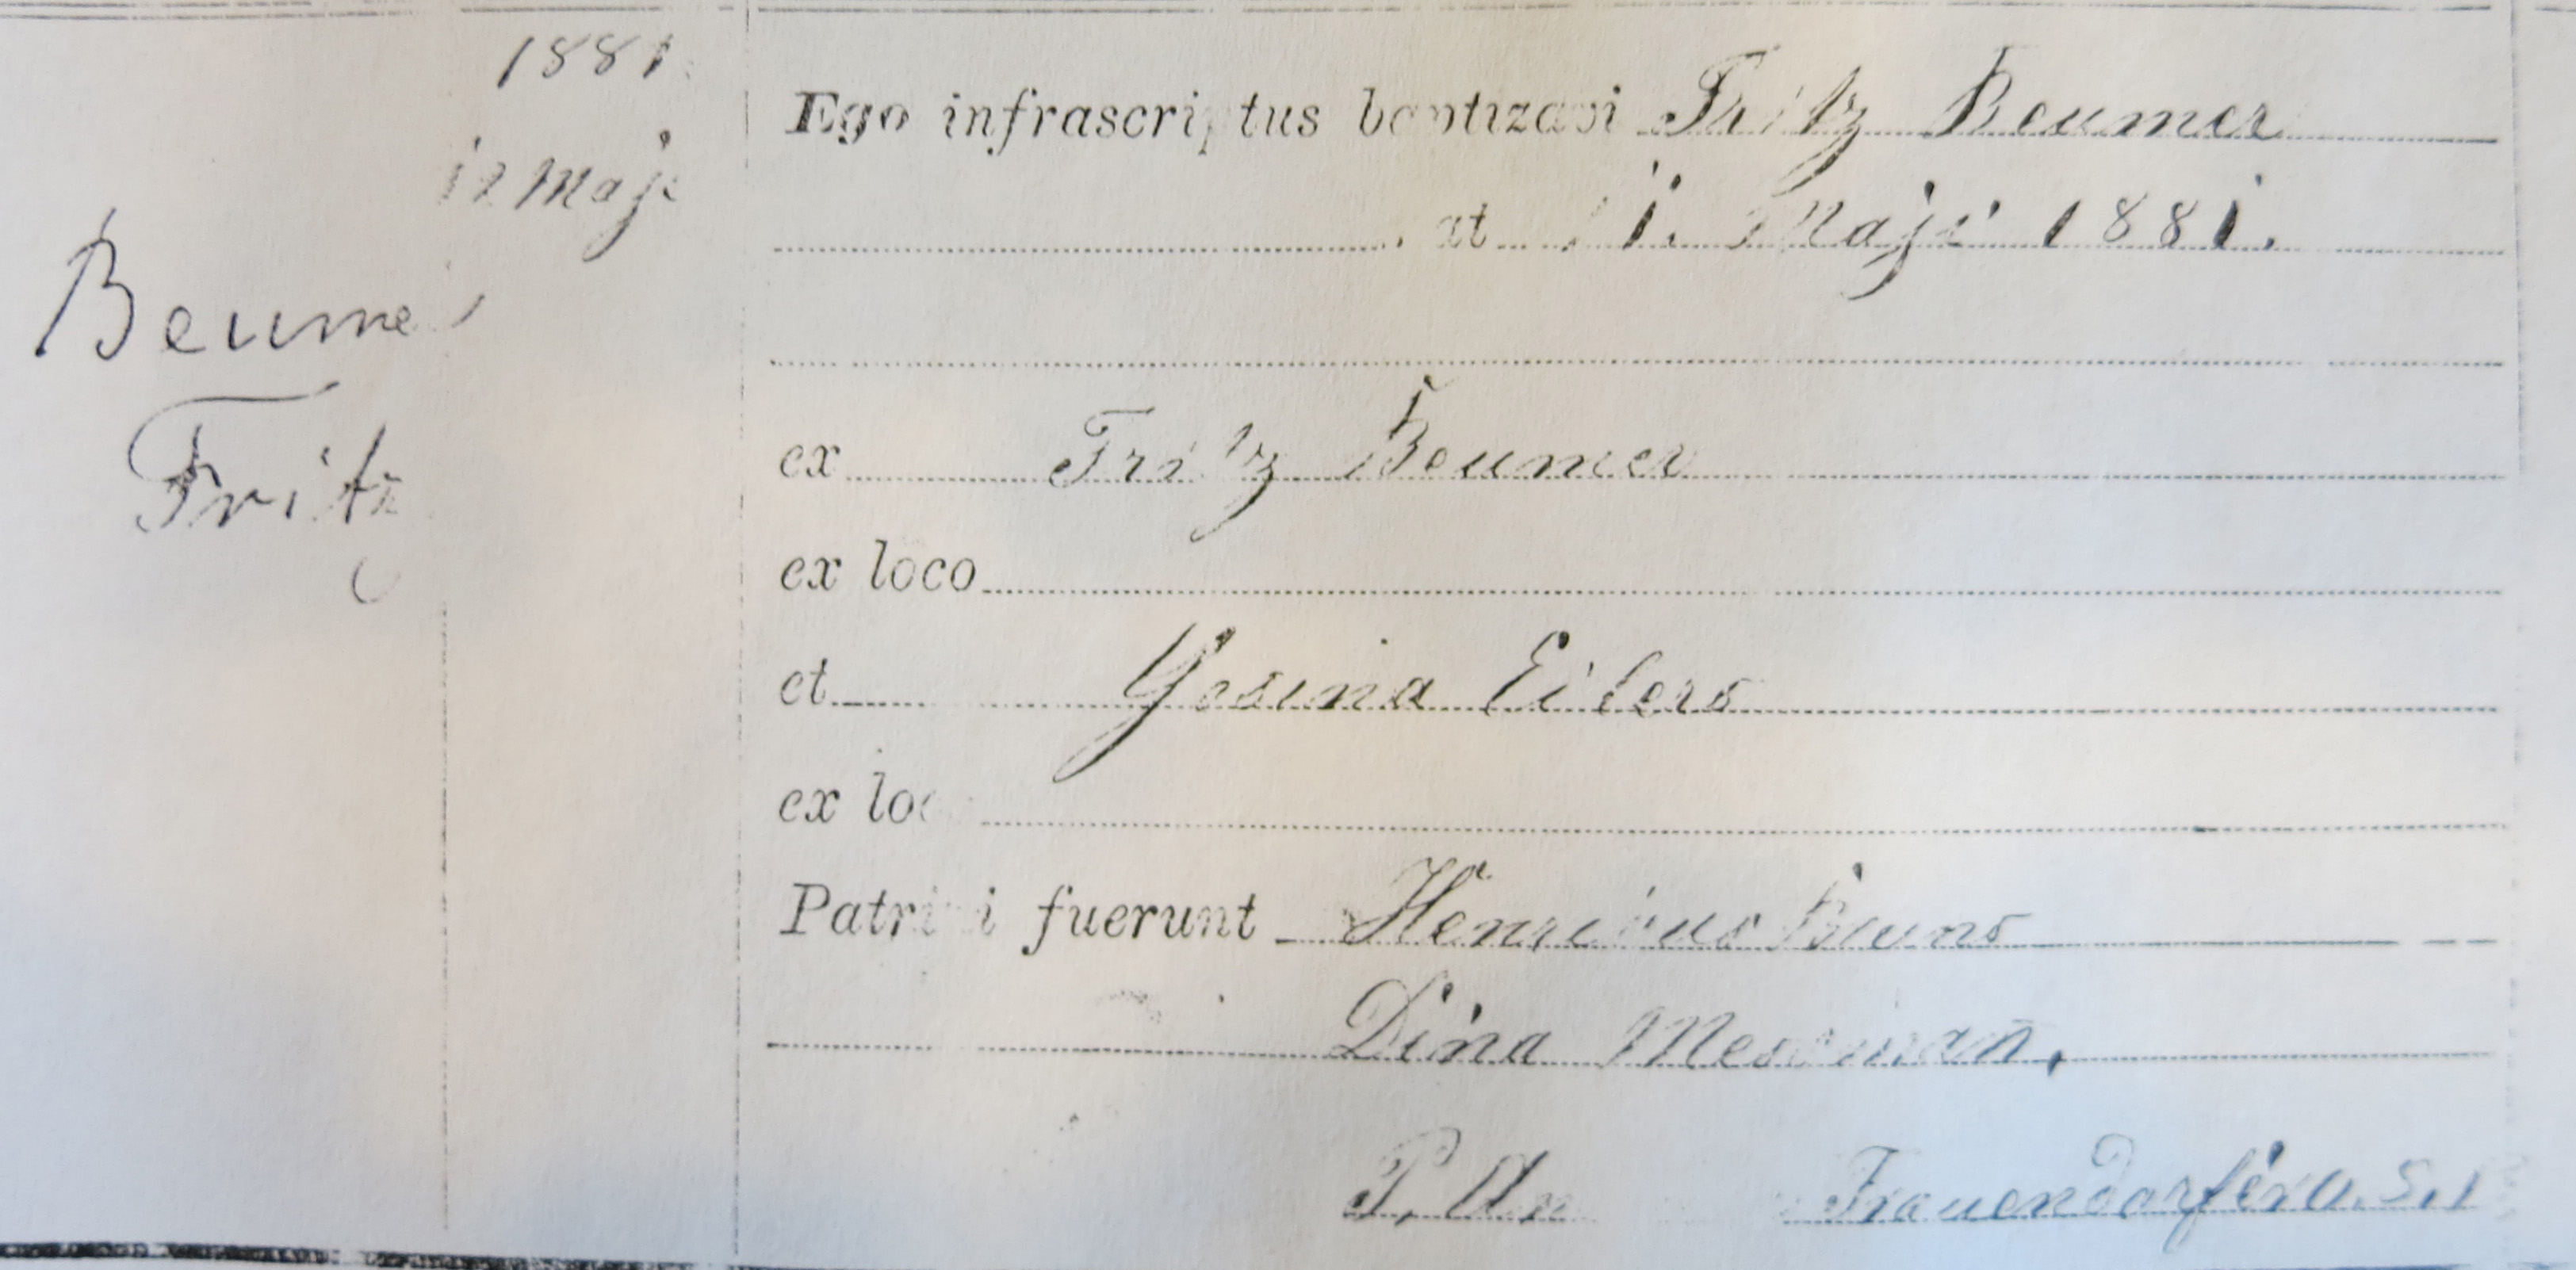 1881.
12 Maji
Beumer
Fritz
Ego infrascriptus baptizavi Fritz Beumer
at 11. Maji 1881.
ex Fritz Beumer
ex loco
et Gesina Eilers
ex loco
Patrini fuerunt Henricus Bruns
Dina
P. Frauendorfer